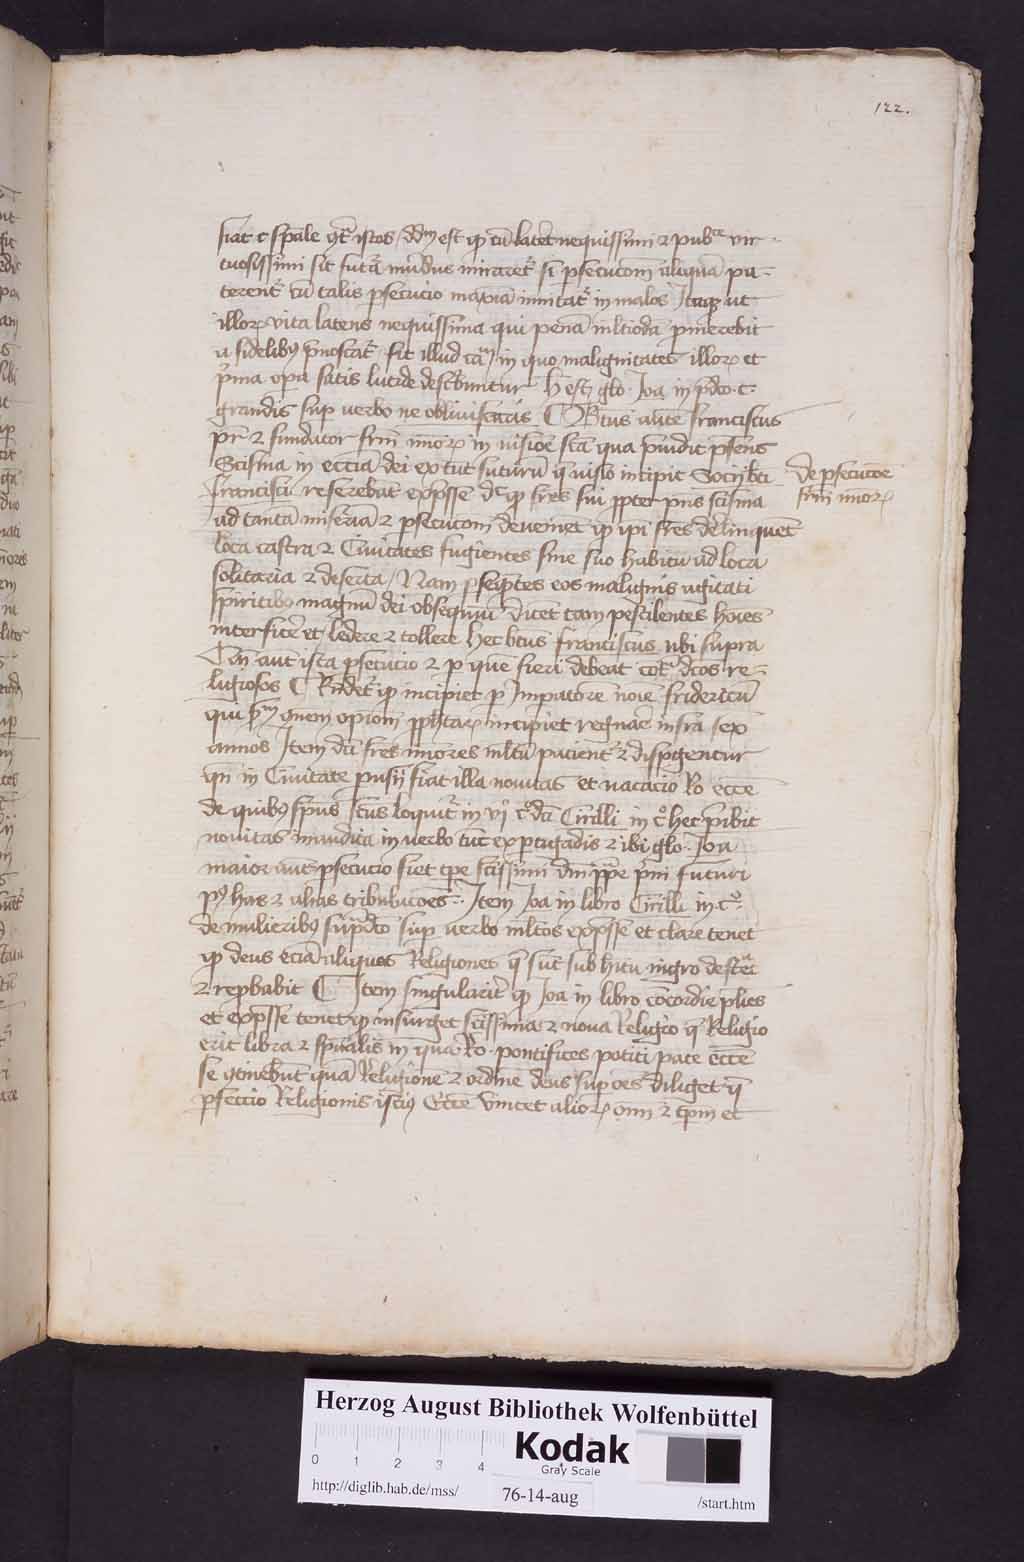 122.
fiat c spāle ꝯtͬ istos / dd̄m est ꝙ cū latēt nequissimi ⁊ pubᶜᵉ vir-
tuosissimi sit futā mūdus miraretͬ si ꝑsecucōm aliquā pa-
terentͬ cū talis ꝑsecucio maxīa īmitatͬ in malos Itaqꝫ ut
illoꝝ vita latens nequissima qui penā mltiodā ꝓmerebit
a fidelibꝰ p̄noscatͬ fit illud cā in quo malignitates illoꝝ et
p̄ma opa satis lucide describuntur h̄ estꝫ glo · Joa in p̄dco · c ·
grandis sup verbo ne obliviscaris ¶ Btus aute franciscus
pr̄ ⁊ fundator frm̄ mioꝝ in visiōe sc̄a qua p̄vidit p̄sens
Scisma in ecc̄ia dei ex tūc futurū q̄ visio incipit Socij bt̄i
francisci referebāt exp̄sse dc̄ ꝙ fr̄es sui ꝓpter p̄ns scisma
ad tantā miseriā ⁊ ꝑsecucōm deveniēt ꝙ ip̄i fr̄es delinquēt
loca castra ⁊ Civitates fugientes sine suo habitu ad loca
solitaria ⁊ deserta / Nam ꝑseq̄ntes eos malignis agitati
spiritibꝰ magnū dei obsequiū dicēt tam pestilentes hōies
interficē et ledere ⁊ tollere hec btus franciscus ubi supra
aut ista ꝑsecucio ⁊ ꝑ quē fieri debeat cotͬ dc̄os re-
ligiosos ¶ Rn̄detͬ ꝙ incipiet ꝑ Impatorē noīe fridericū
qui ẜm ꝯnem opiōm ꝓphetaꝝ incipiet regnaē infra · lex
annos Item dū fr̄es mīores mltū pacientͬ ⁊ dispgentur
qn̄ in Civitate pusij fiat illa novitas et vacacio Ro ecc̄e
de quibꝰ sp̄us sc̄us loquitͬ in vjͦ cͦ dn̄i Cirilli in cͦ hec p̄ibit
novitas inaudita in verbo tūc expugādis ⁊ ibi glo · Joa
maior aut ꝑsecucio fiet tp̄e sc̄issimi dn̄i pp̄e p̄mi futuri
pꝰ has ⁊ alias tribulacoēs · Item Joa in libro Cirilli in cͦ ·
de mulieribꝰ sup̄dc̄o sup verbo mltos exp̄sse et clare tenet
ꝙ deus eciā aliquas Religiones q̄ sūt sub hitu nigro destͬet
⁊ reꝓbabit ¶ Item singularitͬ ꝙ Joa in libro cōcordie plies
et exp̄sse tenet ꝙ insurget sc̄issima ⁊ nova Religio q̄ Religio
erit libra ⁊ sp̄ualis in qua Ro · pontifices potiti pace ecc̄e
se ꝯtinebūt quā Religionē ⁊ ordinē deus sup oēs diliget q̄
ꝑfeccio Religionis istiꝰ Ecc̄e vincet alioꝝ oīm ⁊ tp̄m et
de ꝑsecucōe
frm̄ mioꝝ
Herzog August Bibliothek Wolfenbüttel
Kodak
Gray Scale
0 1 2 3 4
http://diglib.hab.de/mss/
76-14-aug
/start.htm